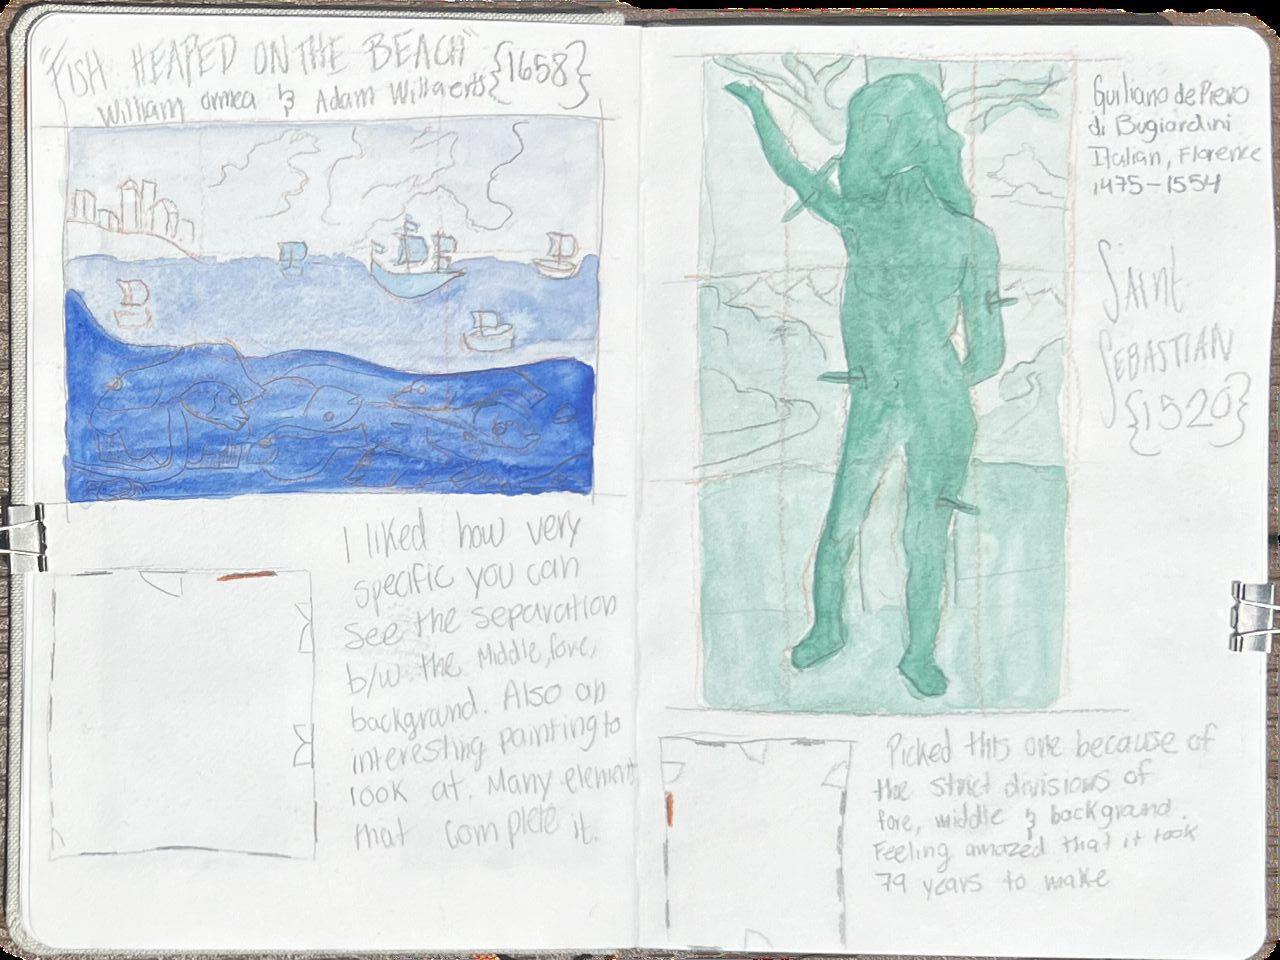 "FISH HEAPED ON THE BEACH"
William ormea & Adam Willaerts {1658}
I liked how very
specific you can
see the separation
b/w the Middle, fore,
background. Also an
interesting painting to
look at. Many element
that complete it.
Guiliano de Piero
di Bugiardini
Italian, Florence
1475-1554
SAINT
SEBASTIAN
{1520}
Picked this one because of
the strict divisions of
fore, middle & background.
Feeling amazed that it took
79 years to make